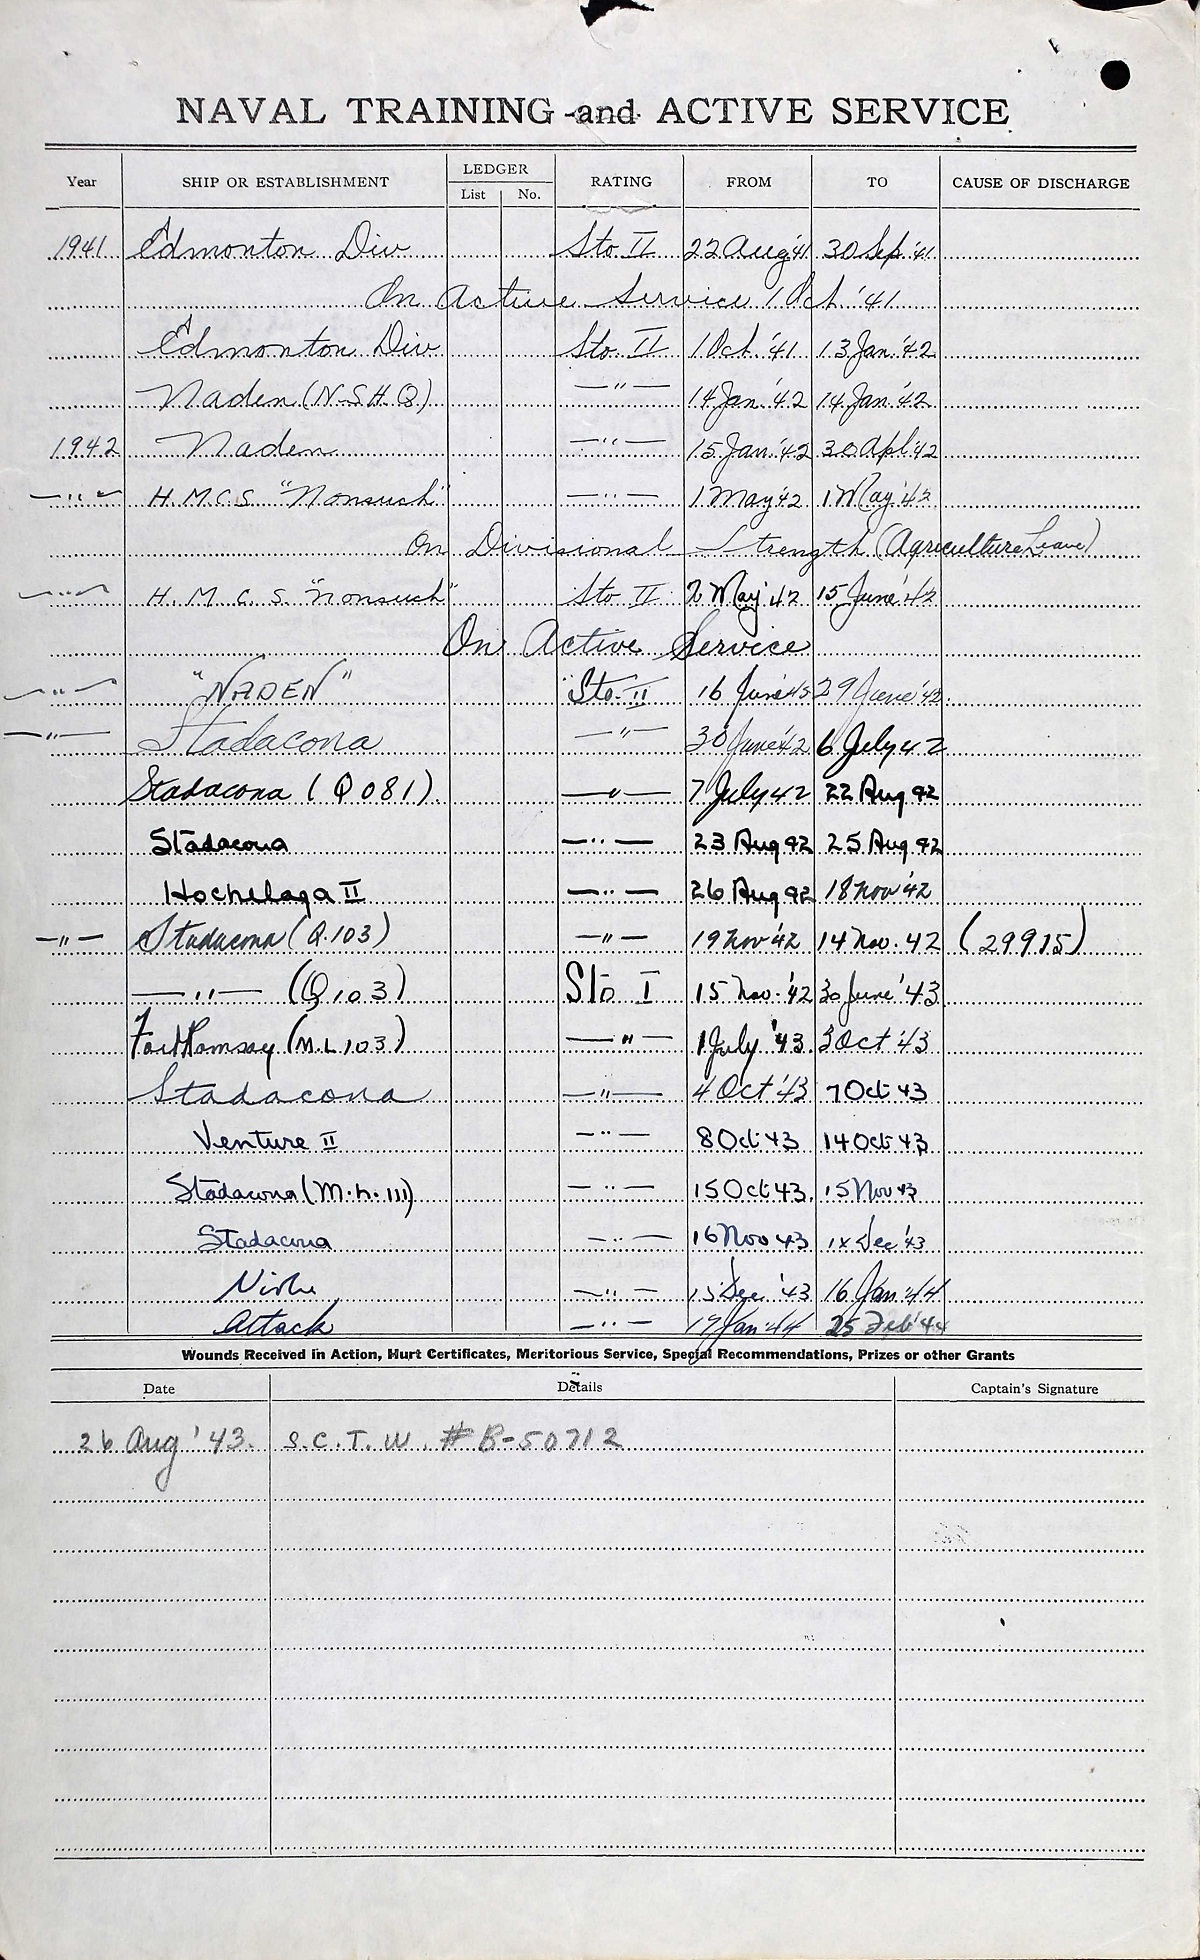 NAVAL TRAINING and ACTIVE SERVICE
Year SHIP OR ESTABLISHMENT LEDGER List No. RATING FROM TO CAUSE OF DISCHARGE
1941 Edmonton Div Sto. II 22 Aug '41 30 Sep '41
On Active Service 1 Oct. '41
Edmonton Div Sto. II 1 Oct. '41 13 Jan. '42
Naden (N.S.H.Q.) —"— 14 Jan. '42 14 Jan. '42
1942 Naden —"— 15 Jan. '42 30 Apl '42
—"— H.M.C.S. "Nonsuch" —"— 1 May '42 1 May '42
On Divisional Strength (Agriculture Leave)
—"— H.M.C.S. "Nonsuch" Sto II 2 May '42 15 June '42
On Active Service
—"— "NADEN" Sto. II 16 June '42 29 June '42
—"— Stadacona —"— 30 June '42 6 July 42
Stadacona (Q 081) —"— 7 July 42 22 Aug 42
Stadacona —"— 23 Aug 42 25 Aug 42
Hochelaga II —"— 26 Aug 42 18 Nov '42
—"— Stadacona (Q.103) —"— 19 Nov '42 14 Nov. 42 (29915)
—"— (Q103) Sto I 15 Nov. '42 30 June '43
Fort Ramsay (M.L.103) —"— 1 July '43 3 Oct '43
Stadacona —"— 4 Oct '43 7 Oct 43
Venture II —"— 8 Oct 43 14 Oct 43
Stadacona (M.L. 111) —"— 15 Oct 43. 15 Nov 43
Stadacona —"— 16 Nov 43 Dec '43
—"— Dec '43 16 Jan '44
Attack —"— 17 Jan '44 25 Feb '44
Wounds Received in Action, Hurt Certificates, Meritorious Service, Special Recommendations, Prizes or other Grants
Date Details Captain's Signature
26 Aug '43. S.C.T.W. # B-50712